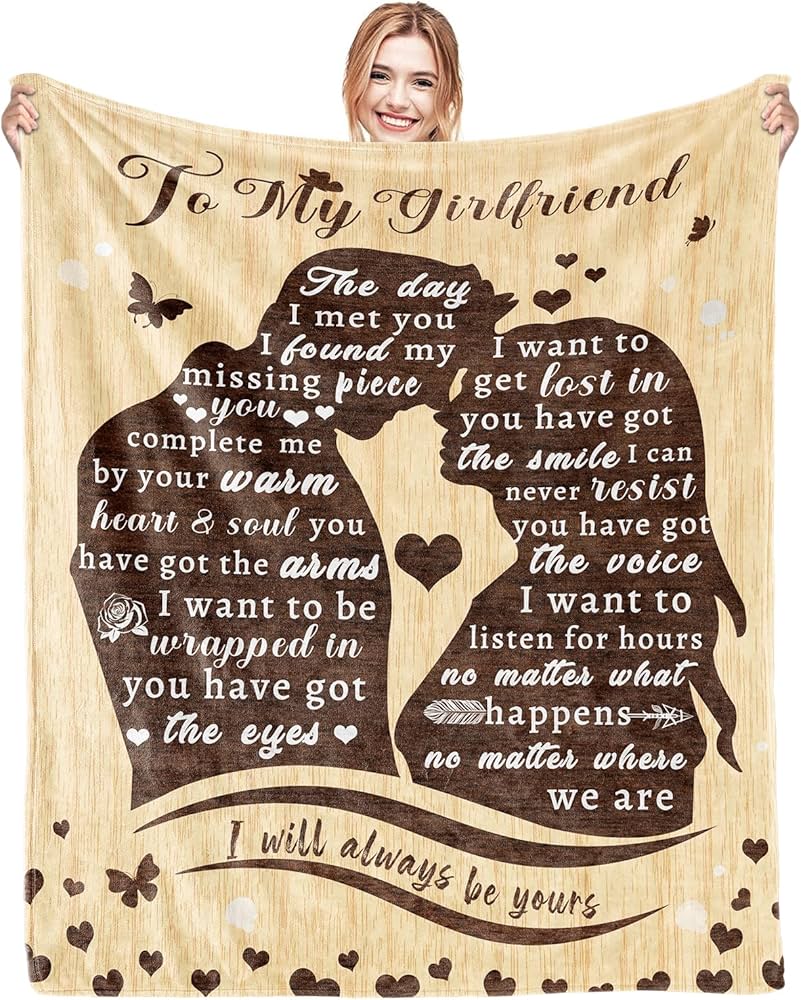 To My Girlfriend
The day
I met you
I found my
missing piece
you
complete me
by your warm
heart & soul you
have got the arms
I want to be
wrapped in
you have got
the eyes
I want to
get lost in
you have got
the smile I can
never resist
you have got
the voice
I want to
listen for hours
no matter what
happens
no matter where
we are
I will always be yours